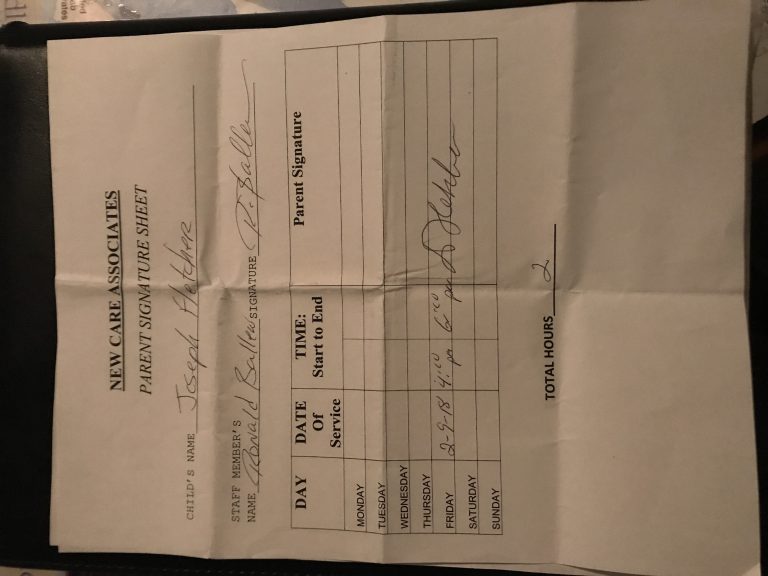 NEW CARE ASSOCIATES
PARENT SIGNATURE SHEET
CHILD'S NAME Joseph Fletcher
STAFF MEMBER'S
NAME Ronald Ballew SIGNATURE R. Ballew
DAY DATE Of Service TIME: Start to End Parent Signature
MONDAY
TUESDAY
WEDNESDAY
THURSDAY
FRIDAY 2-9-18 4:00 pm 6:00 pm
SATURDAY
SUNDAY
TOTAL HOURS 2